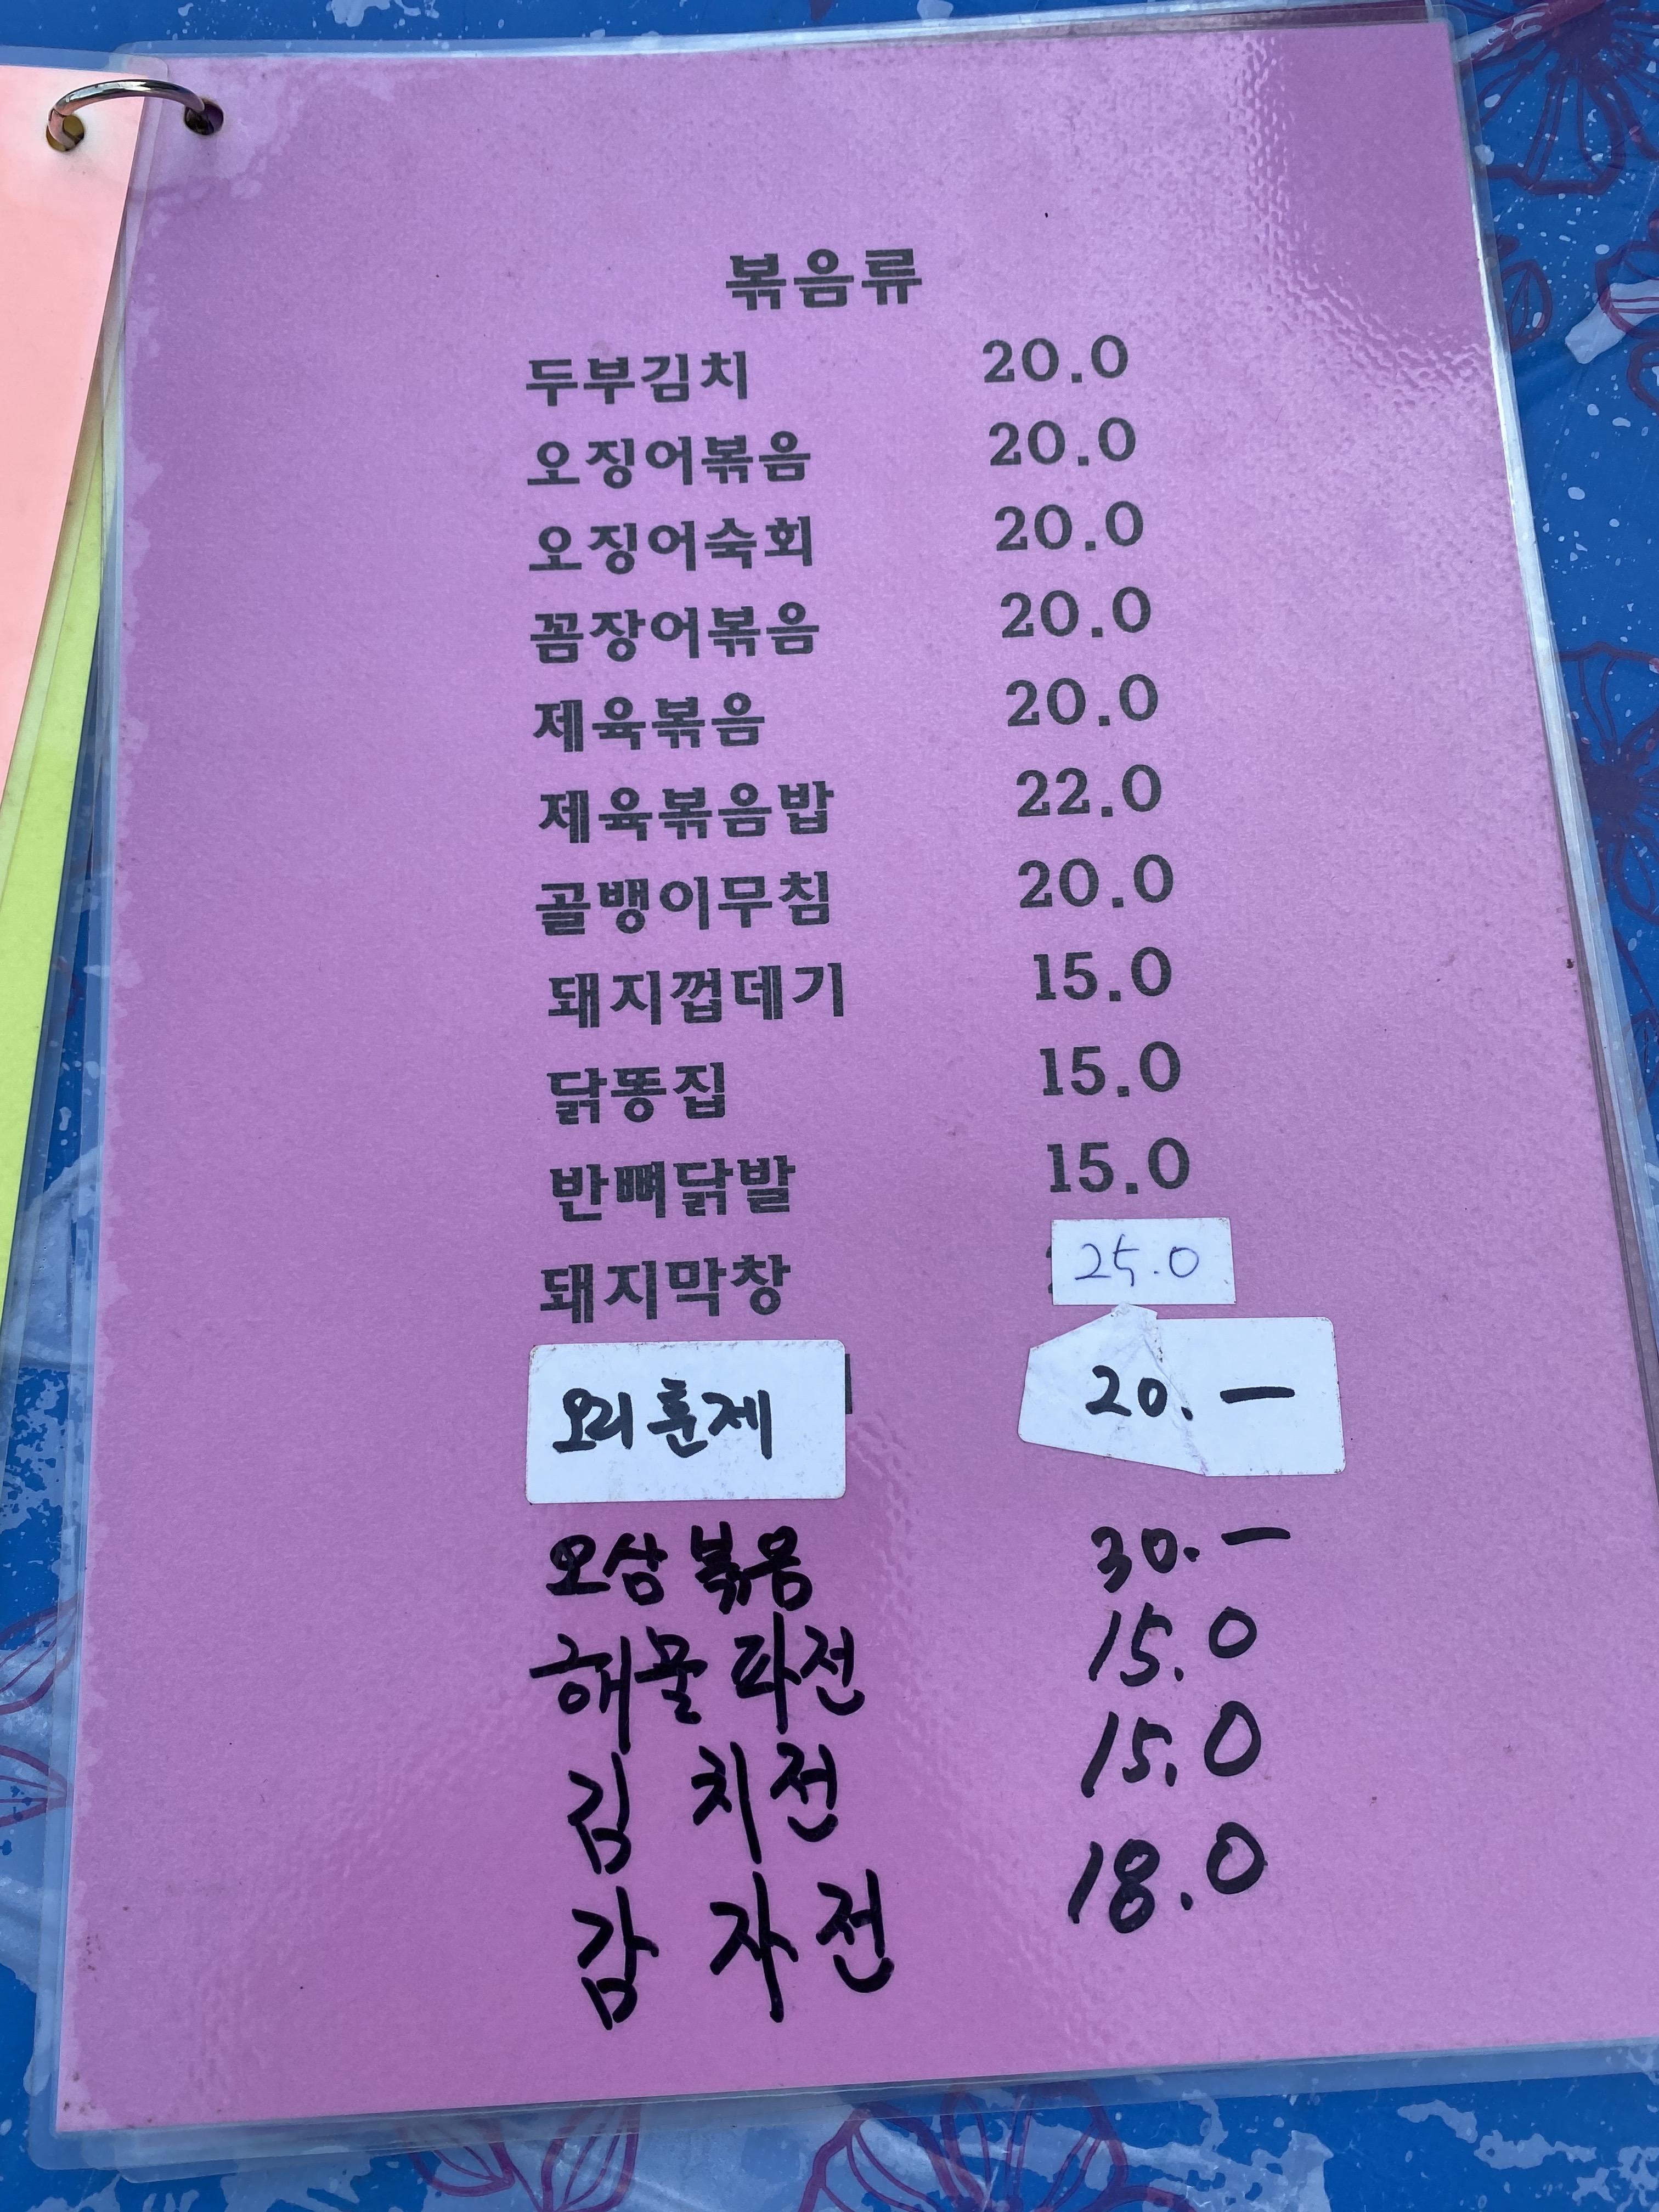 볶음류
두부김치 20.0
오징어볶음 20.0
오징어숙회 20.0
꼼장어볶음 20.0
제육볶음 20.0
제육볶음밥 22.0
골뱅이무침 20.0
돼지껍데기 15.0
닭똥집 15.0
반뼈닭발 15.0
돼지막창 25.0
오리훈제 20.—
오삼볶음 30.—
해물파전 15.0
김치전 15.0
감자전 18.0